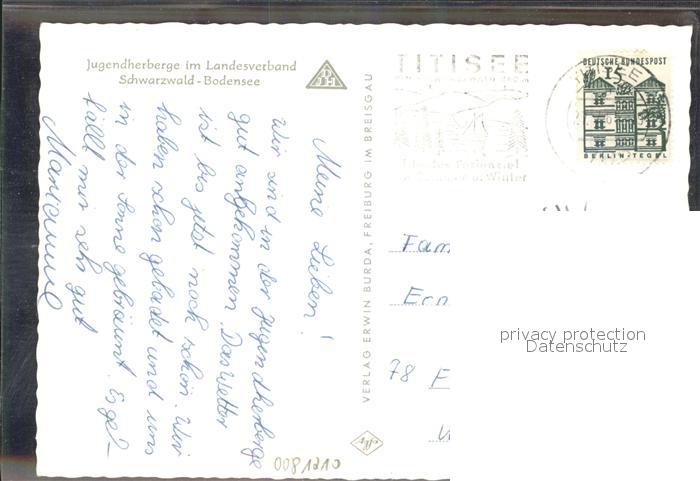 Jugendherberge im Landesverband
Schwarzwald-Bodensee
Meine Lieben!
Wir sind in der Jugendherberge
gut angekommen. Das Wetter
ist bis jetzt noch schön. Wir
haben schon gebadet und uns
in der Sonne gebräunt. Es ge-
fällt mir sehr gut
Marianne
VERLAG ERWIN BURDA, FREIBURG IM BREISGAU
00081210
TITISEE
Ferienziel
Winter
DEUTSCHE BUNDESPOST
15
BERLIN-TEGEL
Fam
Ern
78 F
privacy protection
Datenschutz